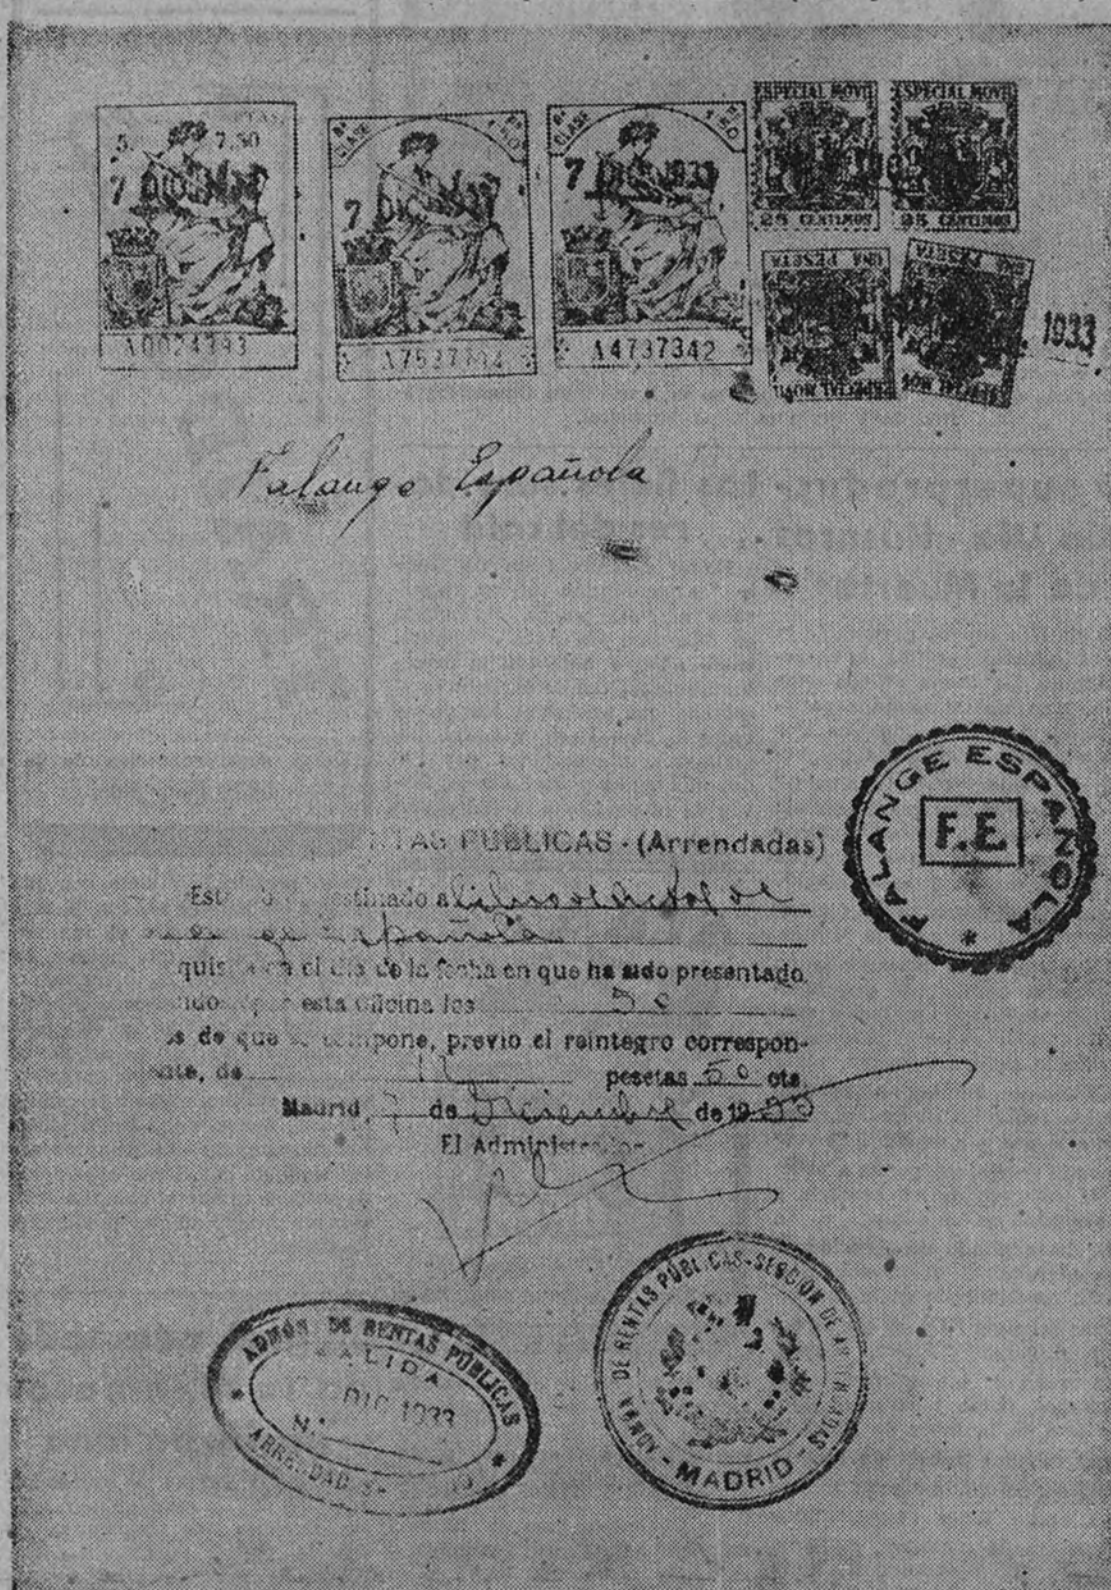 5. 7.50
7 DIC 1933
A0024393
8ª CLASE 1'50
7 DIC 193
8ª CLASE 1'50
7 DIC 1933
A4737342
ESPECIAL MOVIL
25 CENTIMOS
ESPECIAL MOVIL
25 CENTIMOS
UNA PESETA
ESPECIAL MOVIL
UNA PESETA
ESPECIAL MOVIL
1933
Falange Española
FALANGE ESPAÑOLA
F.E.
NTAS PUBLICAS - (Arrendadas)
Est stinado a libro de Actas de
Española
quis en el día de la fecha en que ha sido presentado,
ndo por esta oficina los 50
s de que se compone, previo el reintegro correspon-
ente, de pesetas 50 cts.
Madrid, 7 de Diciembre de 1933
El Administrador
ADMÓN DE RENTAS PÚBLICAS
SALIDA
DIC 1933
N.
ARRENDADAS
ADMÓN DE RENTAS PÚBLICAS - SECCIÓN DE ARRENDADAS - MADRID -